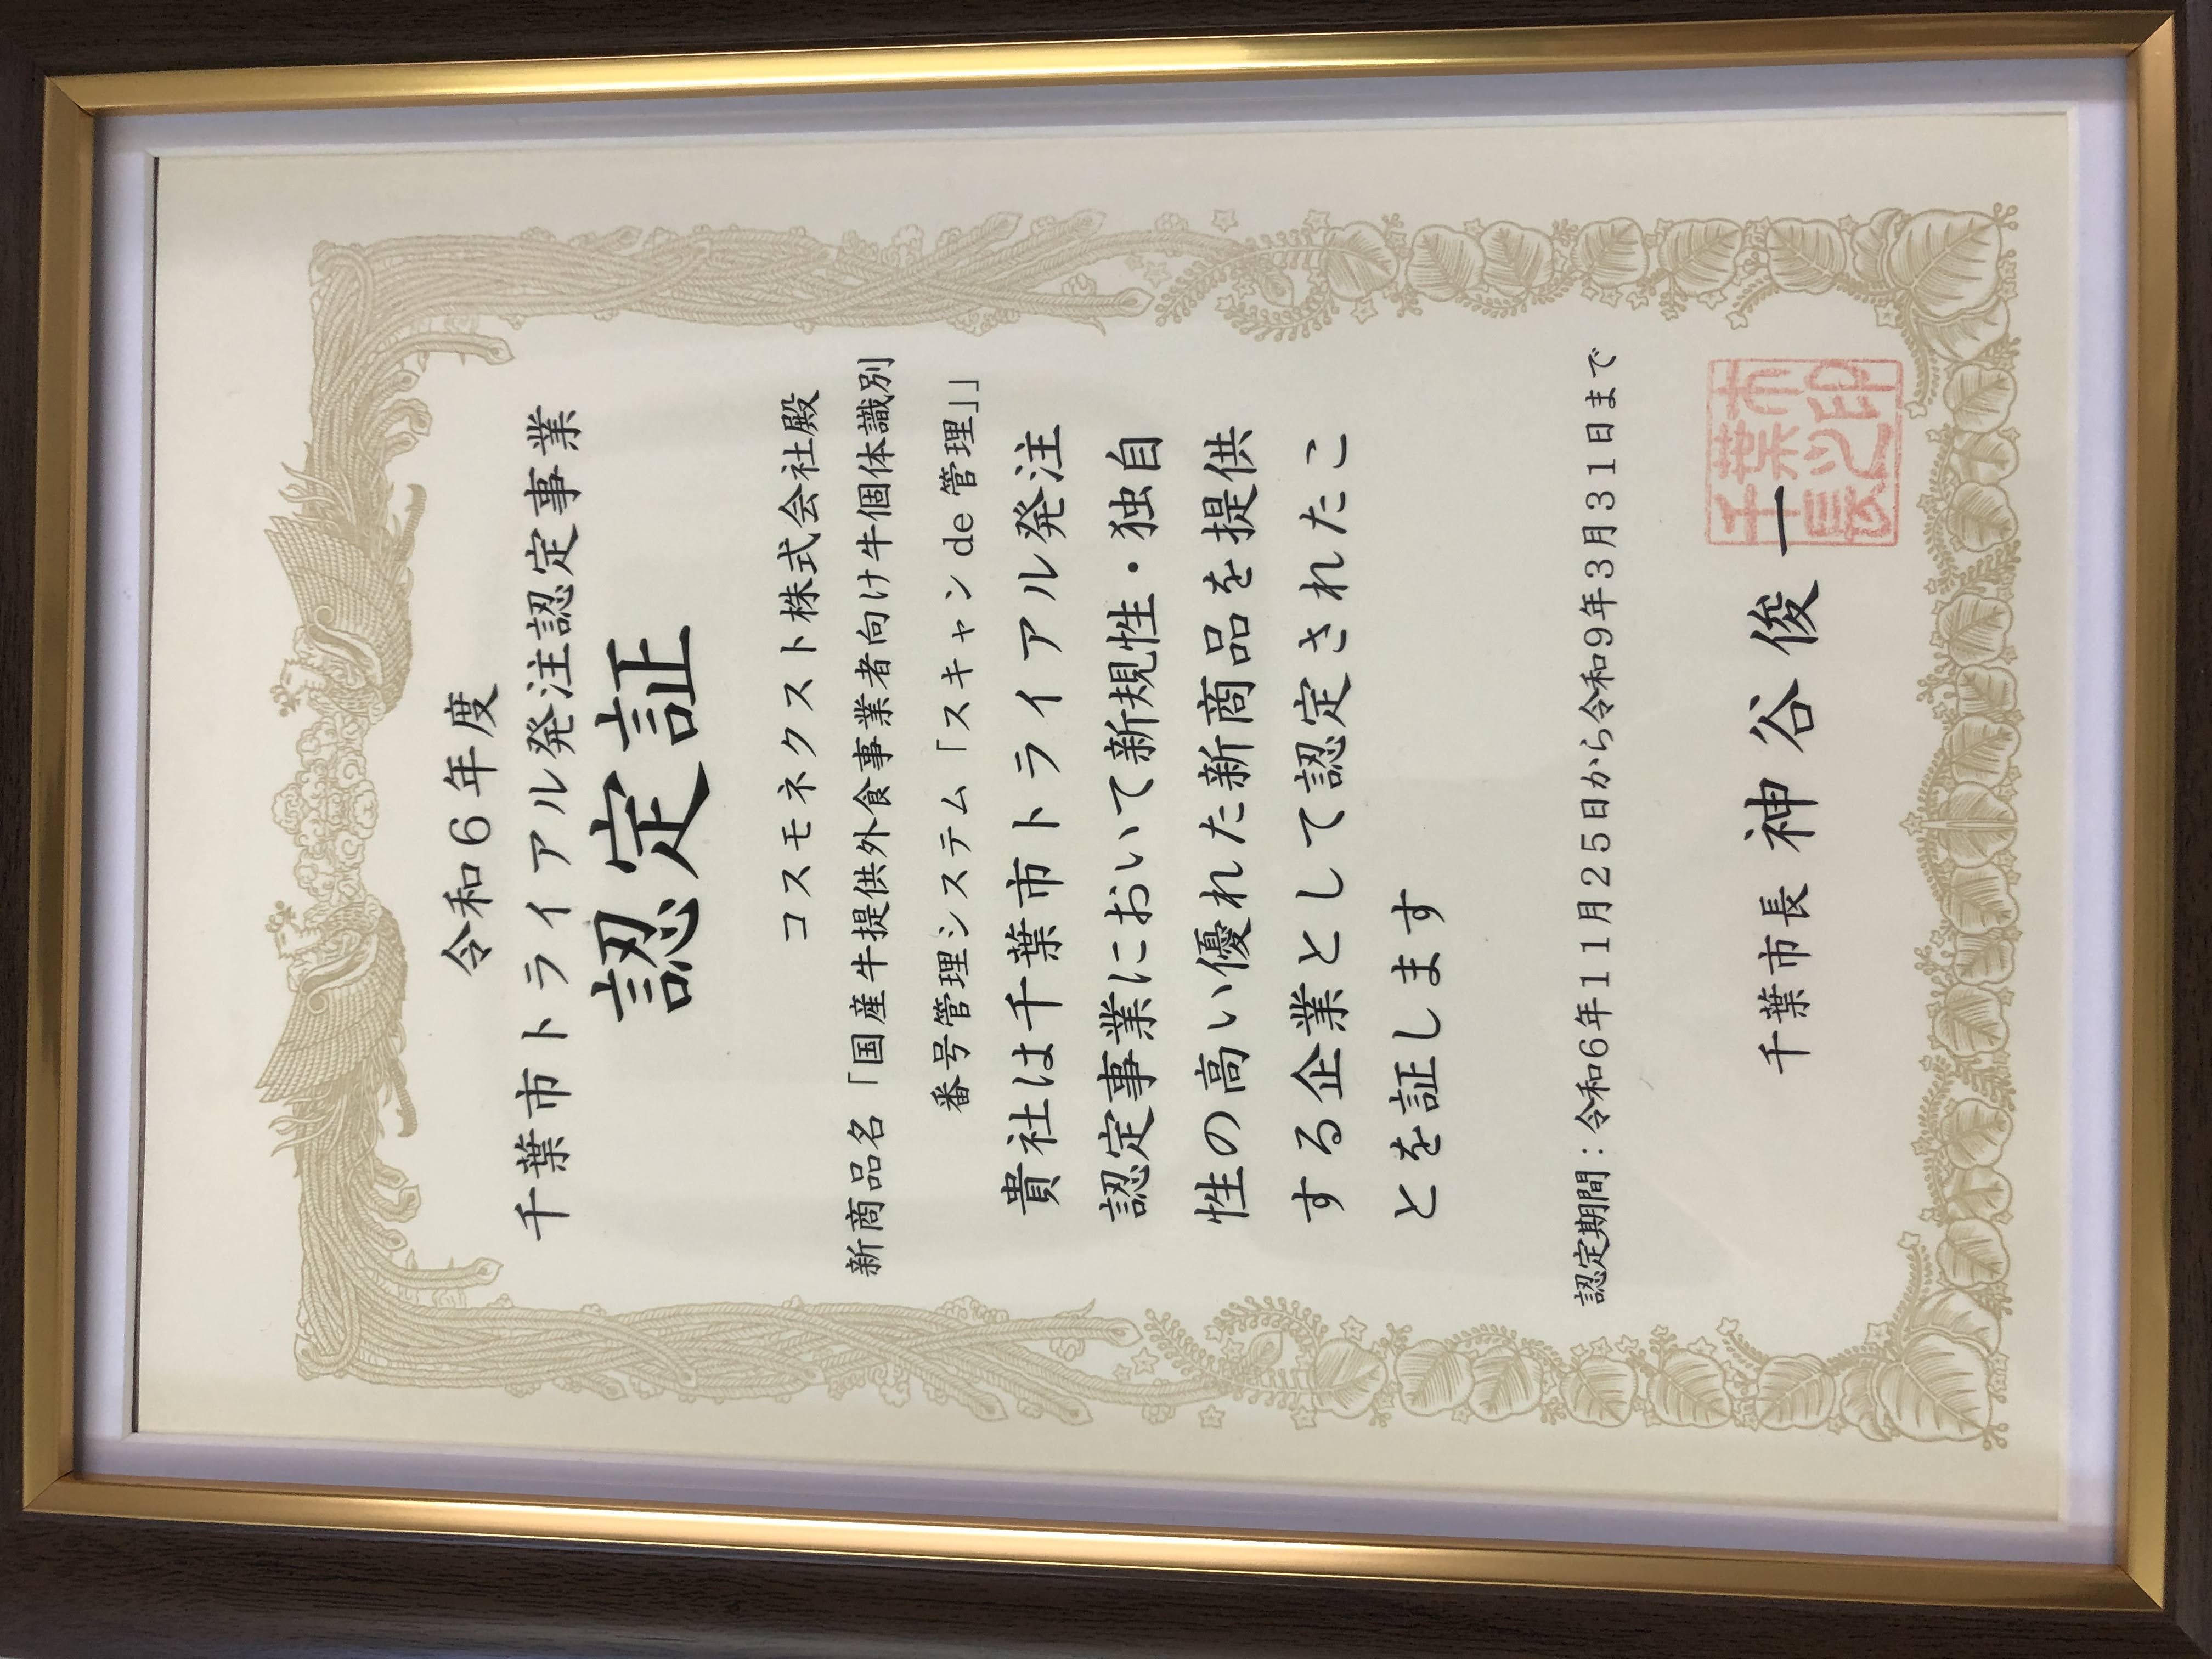 令和6年度
千葉市トライアル発注認定事業
認定証
コスモネクスト株式会社殿
新商品名「国産牛提供外食事業者向け牛個体識別
番号管理システム「スキャンde管理」」
貴社は千葉市トライアル発注
認定事業において新規性・独自
性の高い優れた新商品を提供
する企業として認定されたこ
とを証します
認定期間：令和6年11月25日から令和9年3月31日まで
千葉市長 神谷俊一
千葉市長之印